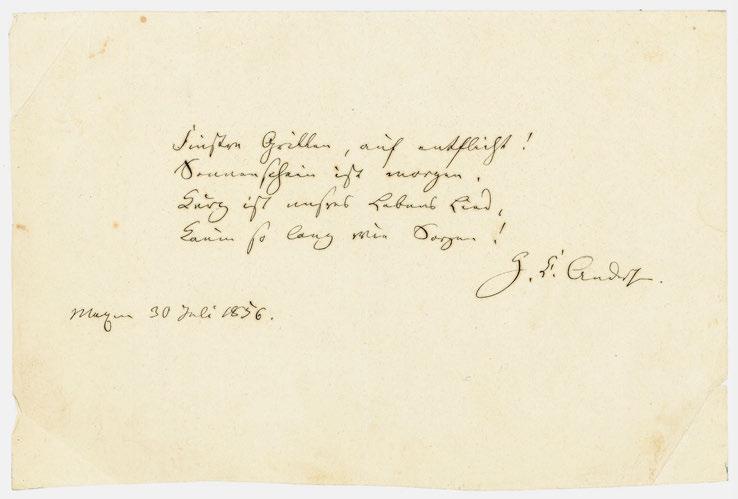 Finstre Grillen, auf entflieht!
Sonnenschein ist morgen.
Kurz ist unsres Lebens Lied,
Kaum so lang wie Sorgen!
H. C. Anders.
Maxen 30 Juli 1856.